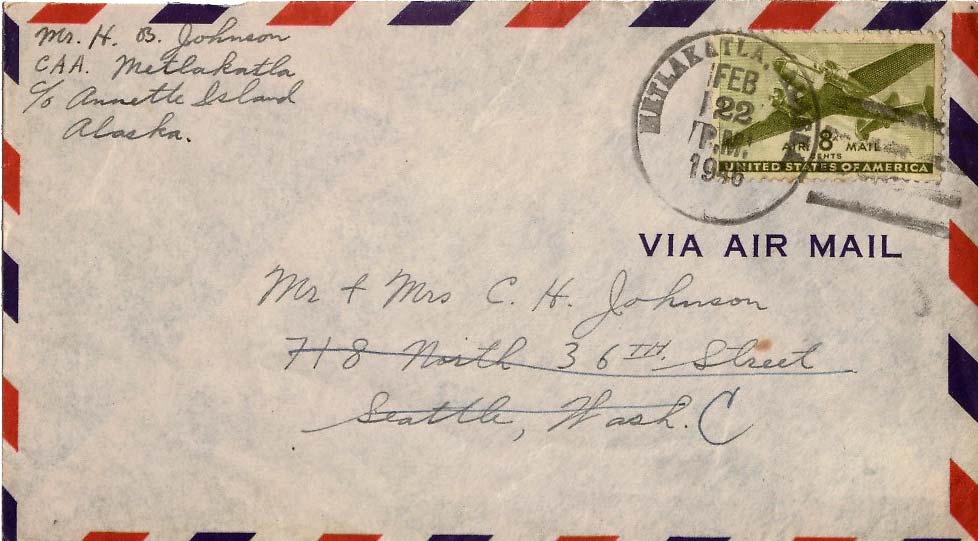 Mr. H. B. Johnson
CAA. Metlakatla
c/o Annette Island
Alaska.
METLAKATLA, ALASKA
FEB
22
P.M.
1946
AIR 8¢ MAIL
CENTS
UNITED STATES OF AMERICA
VIA AIR MAIL
Mr & Mrs C. H. Johnson
718 North 36TH. Street
Seattle, Wash. C